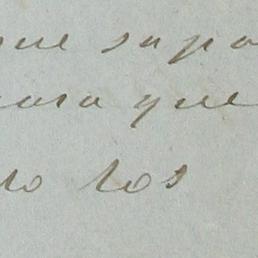 que supo
para que
lo los